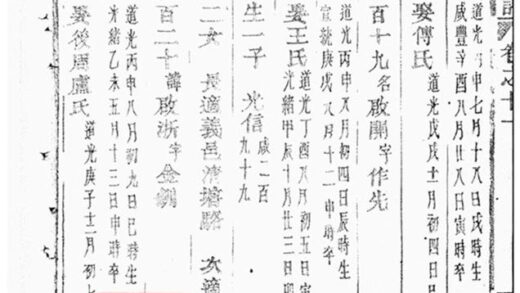 卷之十一
道光丙申七月十八日戌時生
咸豐辛酉八月廿八日寅時
娶傅氏
道光戊戌十一月初四日
百十九 名啟開 字作先
道光丙申八月初四日辰時生
宣統庚戌八月十二申時卒
娶王氏
道光丁酉八月初五
光緒甲辰十月廿三日
生一子 光信
咸二百
九十九
二女 長適義邑清塘駱 次適
百二十 諱啟浙 字金釧
道光丙申八月初九日巳時生
光緒乙未五月十三日申時卒
娶後周盧氏
道光庚子十二月初七